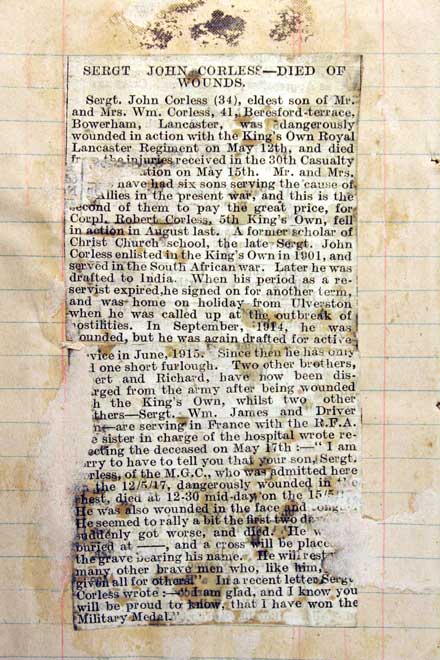 SERGT JOHN CORLESS—DIED OF
WOUNDS.
Sergt. John Corless (34), eldest son of Mr.
and Mrs. Wm. Corless, 41, Beresford-terrace,
Bowerham, Lancaster, was dangerously
wounded in action with the King's Own Royal
Lancaster Regiment on May 12th, and died
the injuries received in the 30th Casualty
ation on May 15th. Mr. and Mrs.
have had six sons serving the cause of
Allies in the present war, and this is the
second of them to pay the great price, for
Corpl. Robert Corless, 5th King's Own, fell
in action in August last. A former scholar of
Christ Church school, the late Sergt. John
Corless enlisted in the King's Own in 1901, and
served in the South African war. Later he was
drafted to India. When his period as a re-
servist expired, he signed on for another term,
and was home on holiday from Ulverston
when he was called up at the outbreak of
ostilities. In September, 1914, he was
ounded, but he was again drafted for active
vice in June, 1915. Since then he has only
d one short furlough. Two other brothers,
ert and Richard, have now been dis-
arged from the army after being wounded
h the King's Own, whilst two other
thers—Sergt. Wm. James and Driver
—are serving in France with the R.F.A.
e sister in charge of the hospital wrote re-
ecting the deceased on May 17th :—"I am
rry to have to tell you that your son, Sergt.
orless, of the M.G.C., who was admitted here
the 12/5/17, dangerously wounded in
chest, died at 12-30 mid-day on the 15/5
He was also wounded in the face and
He seemed to rally a bit the first two
suddenly got worse, and died. He
buried at ——, and a cross will be
the grave bearing his name. He will rest
many other brave men who, like him,
given all for others." In a recent letter Sergt
Corless wrote :—"I am glad, and I know you
will be proud to know, that I have won the
Military Medal."